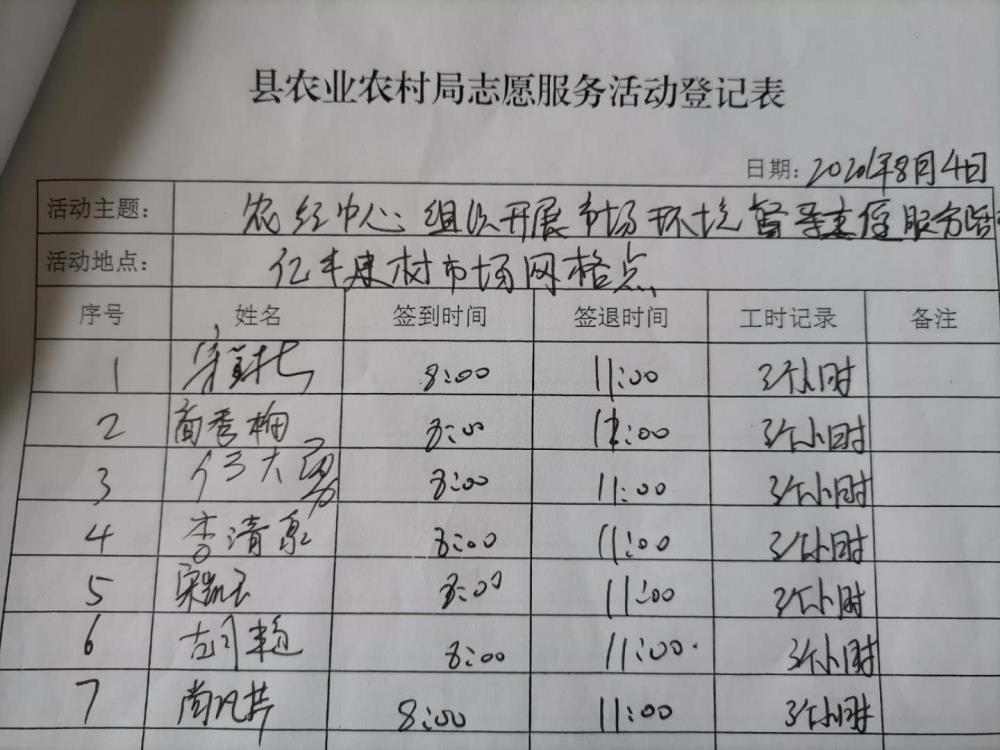 县农业农村局志愿服务活动登记表
日期：2020年8月4日
活动主题： 农经中心：组织开展市场环境督导志愿服务活
活动地点： 亿丰建材市场网格点
序号 姓名 签到时间 签退时间 工时记录 备注
1 8:00 11:00 3个小时
2 商秀梅 8:00 11:00 3个小时
3 8:00 11:00 3个小时
4 李清泉 8:00 11:00 3个小时
5 8:00 11:00 3个小时
6 8:00 11:00 3个小时
7 8:00 11:00 3个小时